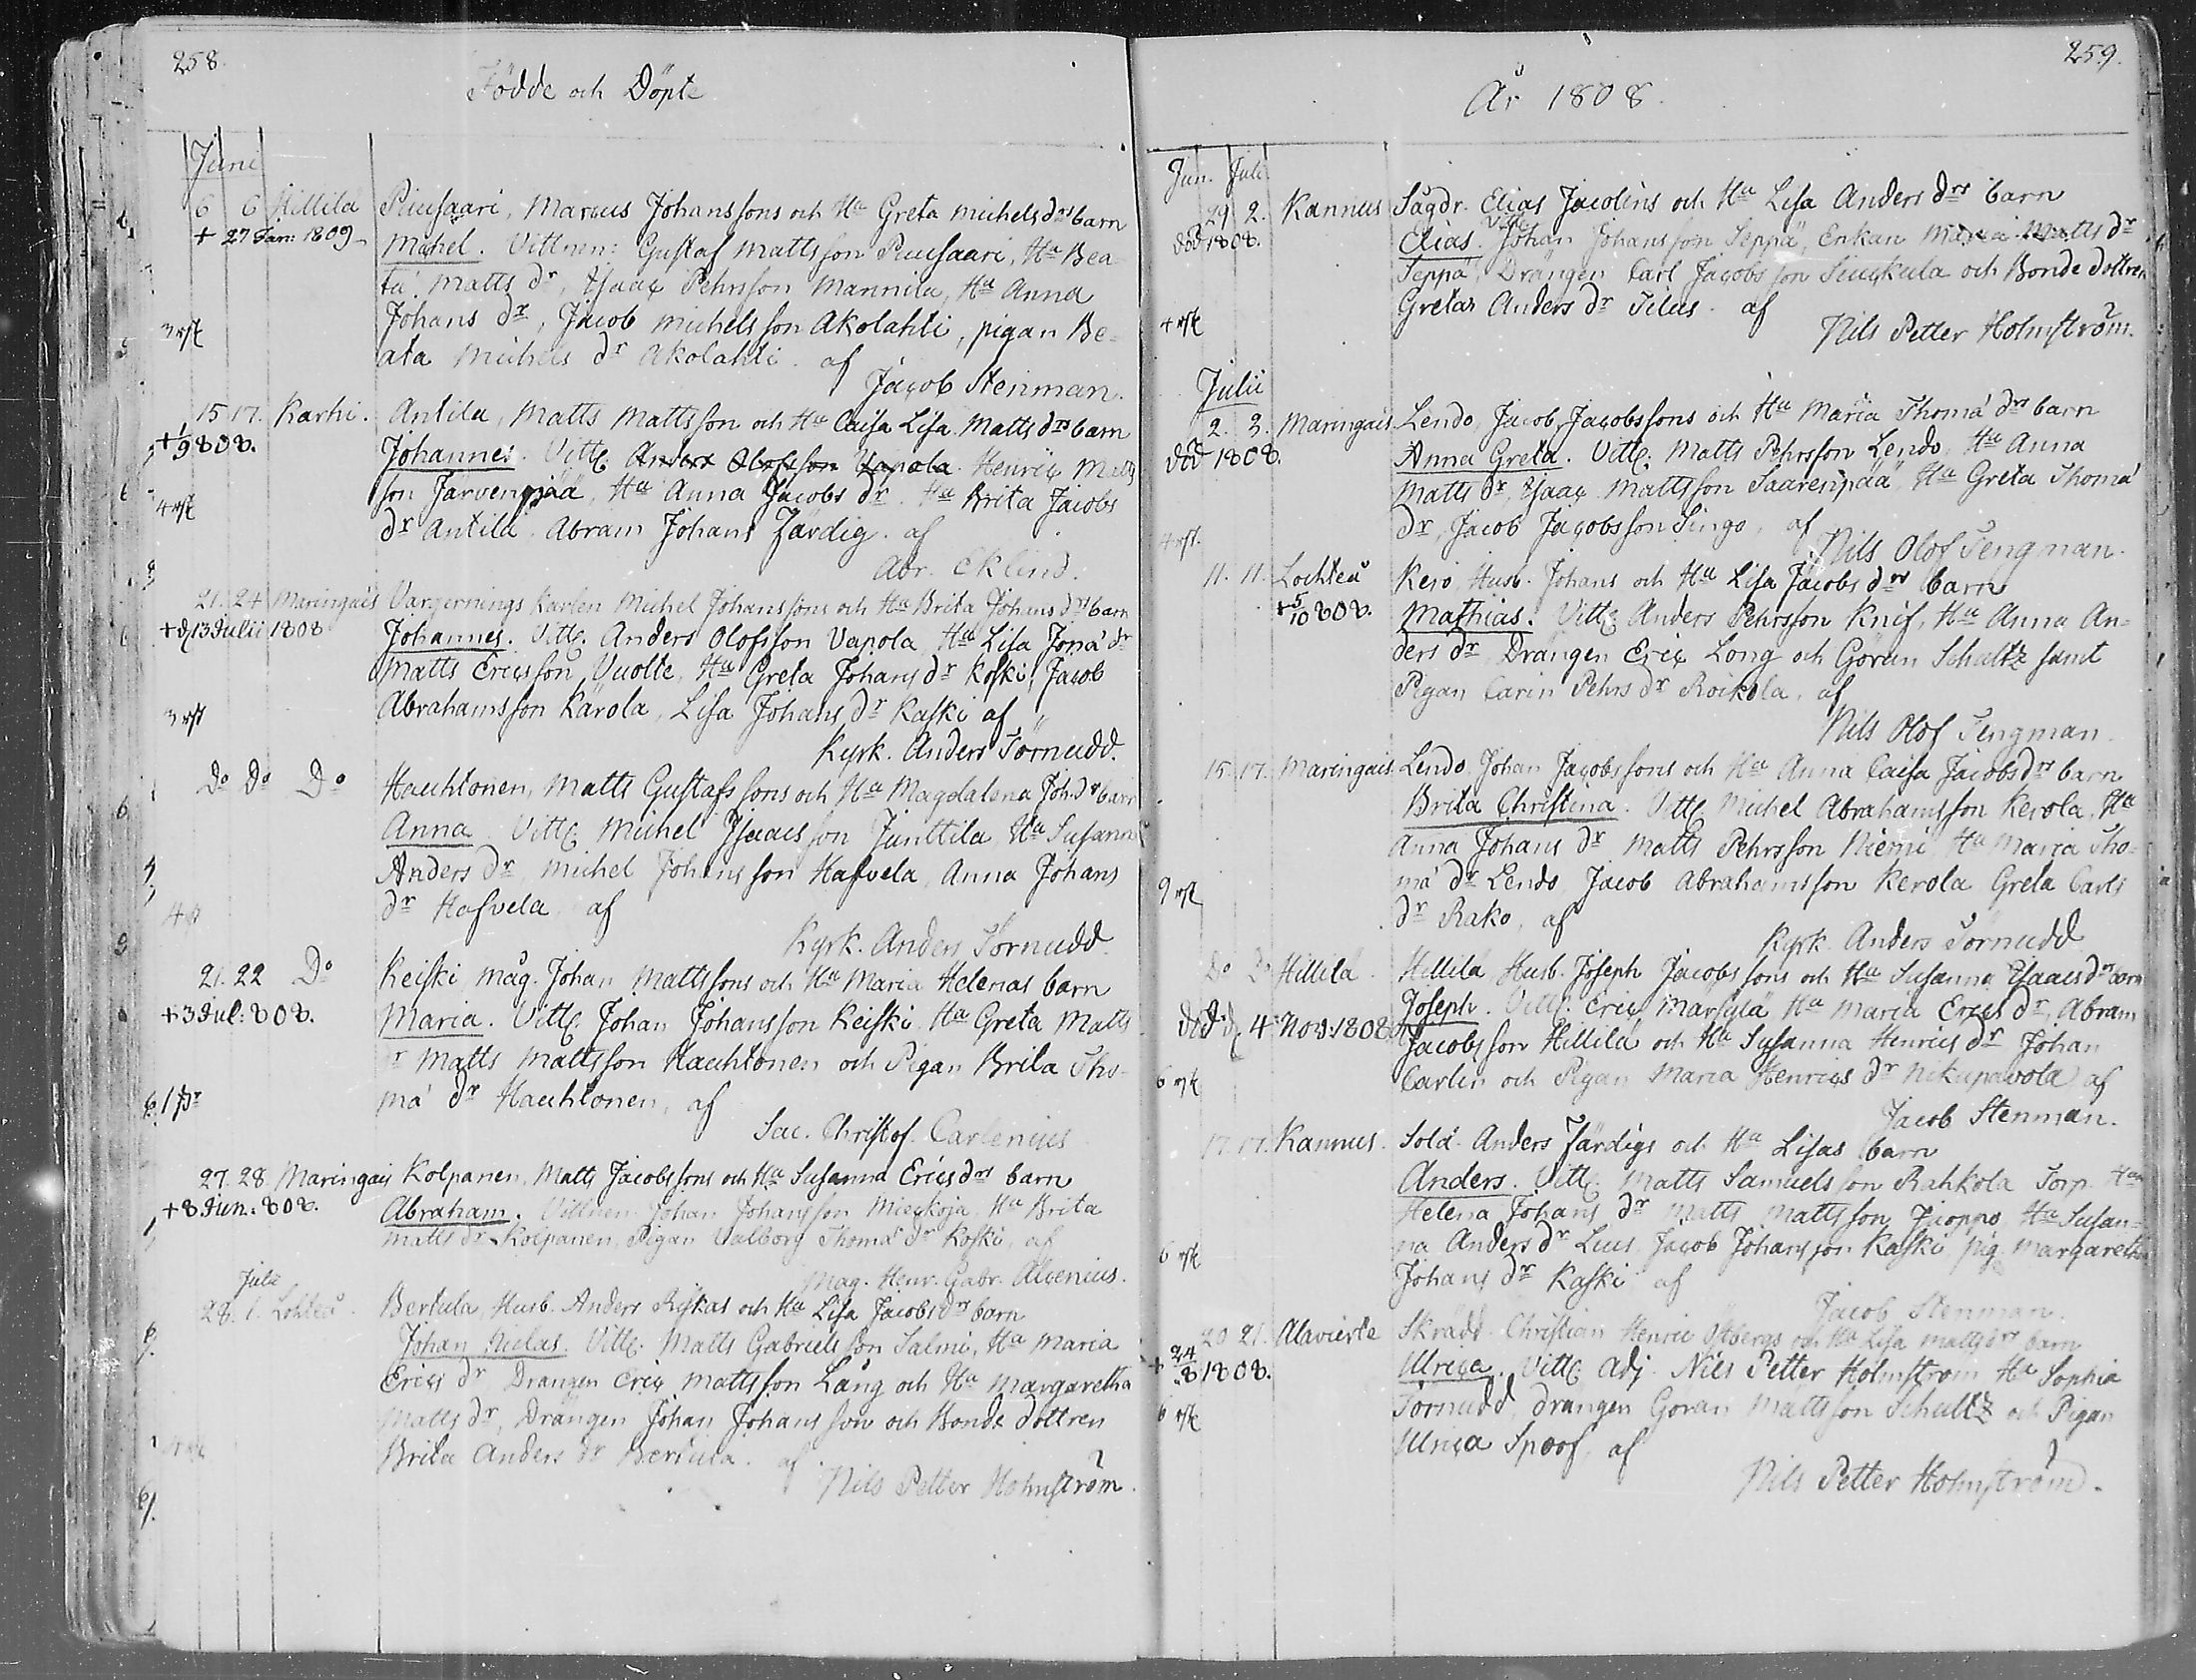 258.
Födde och Döpte
Juni
6 6 Hillilä Piiusaari, Marcus Johanssons och Ha Greta Michels drs barn
+ 27 Jan: 1809 Michel. Vittnen: Gustaf Mattsson Piuusaari, Ha Bea-
ta Matts dr, Isaac Pehrsson Mannila, Ha Anna
Johans dr, Jacob Michelsson Akolahti, pigan Be=
ata Michels dr Akolahti. af
Jacob Stenman.
15 17. Karhi. Antila, Matts Mattsson och Ha Caisa Lisa Matts drs barn
+ 1/9 808. Johannes. Vittn. Anders Olofsson Vapola. Henric Matts
son Järvenpää, Ha Anna Jacobs dr. Ha Brita Jacobs
dr Antila. Abram Johans Färdig. af
Abr. Eklind.
21. 24 Maringais Varfernings karlen Michel Johanssons och Ha Brita Johans drs barn
+ d 13 Julii 1808 Johannes. Vittn. Anders Olofsson Vapola, Ha Lisa Jona dr
Matts Ericsson Vuolte, Ha Greta Johans dr Koski, Jacob
Abrahamsson Kärola, Lisa Johans dr Kaski af
Kyrk. Anders Törnudd.
Do Do Do Hauhtonen, Matts Gustafssons och Ha Magdalena Joh. drs barn
Anna. Vittn. Michel Isaacsson Junttila, Ha Susanna
Anders dr, Michel Johansson Hafvela, Anna Johans
dr Hafvela af
Kyrk. Anders Törnudd.
21. 22 Do Keiski måg. Johan Mattssons och Ha Maria Helenas barn
+ 3 Jul: 808. Maria. Vittn. Johan Johansson Keiski Ha Greta Matts
dr Matts Mattsson Hauhtonen och Pigan Brita Tho-
må dr Hauhtonen, af
Sac. Christof. Carlenius
27. 28. Maringais Kolpanen, Matts Jacobssons och Ha Susanna Erics drs barn
+ 8 Jun: 808. Abraham. Vittnen Johan Johansson Mieckoja Ha Brita
Matts dr Kolpanen, Pigan Valborg Thomå dr Koski, af
Mag. Henr. Gabr. Alcenius.
Juli
28. 1. Lohteå Bertula, Husb. Anders Riskas och Ha Lisa Jacobs drs barn
Johan Niclas. Vittn. Matts Gabrielsson Salmi, Ha Maria
Erics dr Drängen Eric Mattsson Lång och Ha Margaretha
Matts dr, Drängen Johan Johansson och Bonde dottren
Brita Anders dr Bertula. af
Nils Petter Holmström.
259.
År 1808.
Jun. Juli
29 2. Kannus Sågdr. Elias Jacolins och Ha Lisa Anders drs barn
död 1808. Elias. Vittn. Johan Johansson Seppä, Enkan Maria Matts dr
Seppä, Drängen Carl Jacobsson Siuckula och Bonde dottren
Greta Anders dr Tilus. af
Nils Petter Holmström.
Julii
2. 3. Maringais Lendo, Jacob Jacobssons och Ha Maria Thomå drs barn
död 1808. Anna Greta. Vittn. Matts Pehrsson Lendo, Ha Anna
Matts dr, Isaac Mattsson Saarenpää, Ha Greta Thomå
dr, Jacob Jacobsson Singo, af
Nils Olof Tengman.
11. 11. Lochteå Kero, Husb. Johans och Ha Lisa Jacobs drs barn
+ 5/10 808. Mathias. Vittn. Anders Pehrsson Knif, Ha Anna An=
ders dr Drängen Eric Long och Göran Schultz samt
Pigan Carin Pehrs dr Roikola, af
Nils Olof Tengman.
15. 17. Maringais. Lendo Johan Jacobssons och Ha Anna Caisa Jacobs drs barn
Brita Christina. Vittn. Michel Abrahamsson Kerola, Ha
Anna Johans dr Matts Pehrsson Niemi Ha Maria Tho=
må dr Lendo Jacob Abrahamsson Kerola Greta Carls
dr Rako, af
Kyrk. Anders Törnudd
Do Do Hillilä. Hillilä Husb. Joseph Jacobssons och Ha Susanna Isaacs drs barn
död d. 4 Nov. 1808 Joseph. Vittn. Eric Marsylä Ha Maria Erics dr, Abram
Jacobsson Hillilä och Ha Susanna Henrics dr Johan
Carlin och Pigan Maria Henrics dr Nikupavola af
Jacob Stenman.
17. 17. Kannus. Sold. Anders Färdigs och Ha Lisas barn
Anders. Vittn. Matts Samuelsson Rahkola Torp. Ha
Helena Johans dr Matts Mattsson Jäoppo, Ha Susan=
na Anders dr Lius, Jacob Johansson Kaski pig. Margaretha
Johans dr Kaski af
Jacob Stenman.
20 21. Alavierte Skrädd. Christian Henric Östbergs och Ha Lisa Matts drs barn
+ 24/8 1808. Ulrica. Vittn. Adj. Nils Petter Holmström Ha Sophia
Törnudd, drängen Göran Mattsson Schultz och Pigan
Ulrica Spoof, af
Nils Petter Holmström.